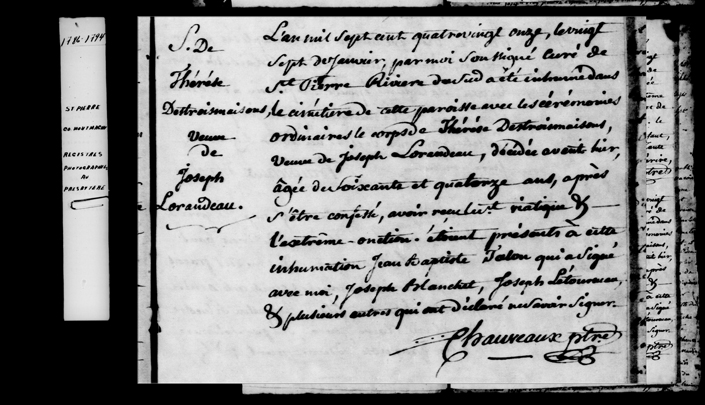 1786-1794
ST PIERRE
CO. MONTMAGNY
REGISTRES
PHOTOGRAPHIES
AU
PRESBYTERE
S. De
Thérése
Destroismaisons,
veuve
de
Joseph
Lorandeau.
L'an mil sept cent quatrevingt onze, le vingt
sept de Janvier, par moi soussigné curé de
St. Pierre Riviere du Sud a été inhumé dans
le cimétiere de cette paroisse avec les cérémonies
ordinaires le corps de Thérése Destroismaisons,
veuve de Joseph Lorandeau, décédée avant hier,
âgée de soixante et quatorze ans, après
s'être confessé, avoir reçu le St. viatique &
l'extrême-onction. étoient présents à cette
inhumation Jean Baptiste Talon qui a signé
avec moi, Joseph Blanchet, Joseph Létourneau,
& plusieurs autres qui ont déclaré ne savoir signer.
Chauveaux ptre